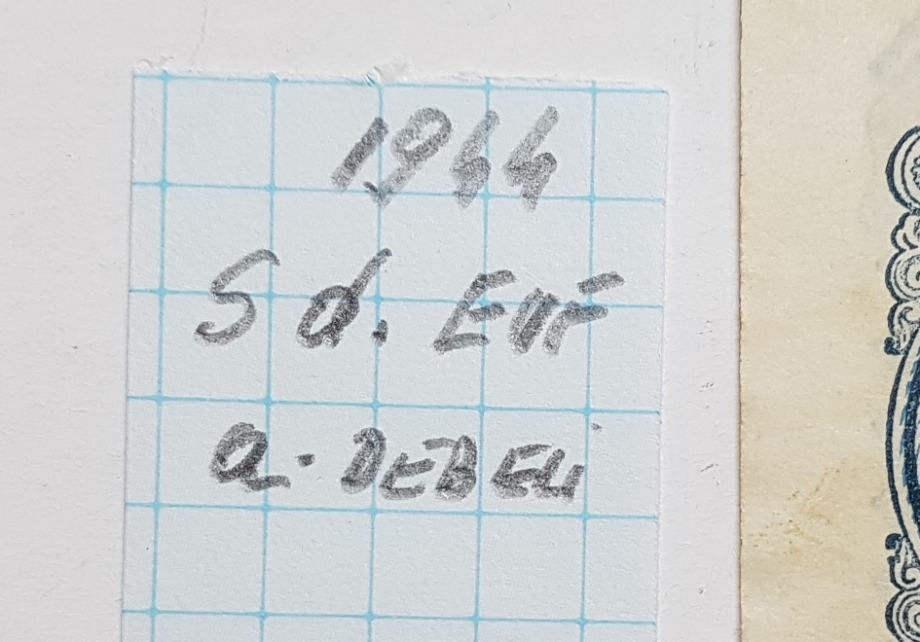 1944
Sd. Eur
a. DEBELI